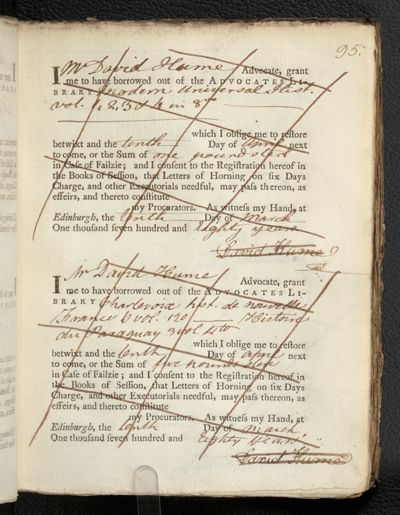 95.
I Mr David Hume Advocate, grant
me to have borrowed out of the ADVOCATES LI-
BRARY Modern Universal Hist.
vol. 1. 2. 3 & 4 in 8vo
which I oblige me to restore
betwixt and the tenth Day of April next
to come, or the Sum of one pound ster
in Case of Failzie; and I consent to the Registration hereof in
the Books of Session, that Letters of Horning on six Days
Charge, and other Executorials needful, may pass thereon, as
effeirs, and thereto constitute
my Procurators. As witness my Hand, at
Edinburgh, the tenth Day of March
One thousand seven hundred and Eighty years
David Hume
I Mr David Hume Advocate, grant
me to have borrowed out of the ADVOCATES LI-
BRARY Charlevoix hist. de nouvelle
France 6 vol. 12o Histoire
du Paraguay 3 vol 4to
which I oblige me to restore
betwixt and the tenth Day of April next
to come, or the Sum of five pounds ster
in Case of Failzie; and I consent to the Registration hereof in
the Books of Session, that Letters of Horning on six Days
Charge, and other Executorials needful, may pass thereon, as
effeirs, and thereto constitute
my Procurators. As witness my Hand, at
Edinburgh, the tenth Day of March
One thousand seven hundred and Eighty years.
David Hume